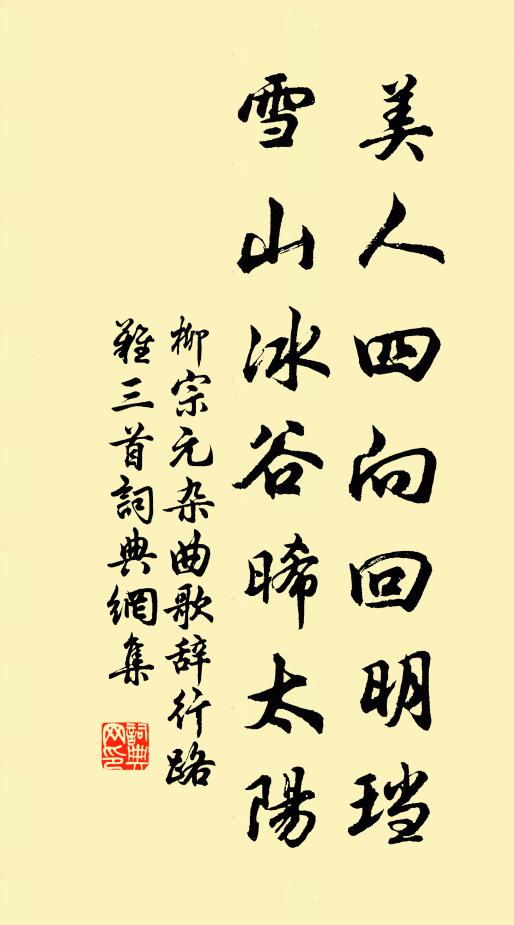 美人四向回明珰
雪山冰谷晞太陽
柳宗元杂曲歌辞行路
難三首詞典網集
詞典
网印